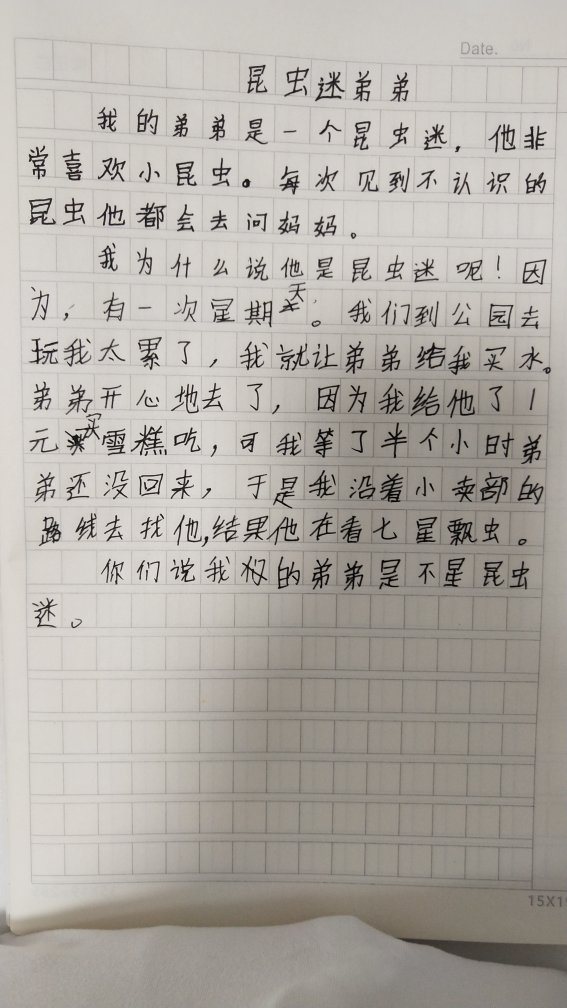 Date.
昆虫迷弟弟
我的弟弟是一个昆虫迷，他非
常喜欢小昆虫。每次见到不认识的
昆虫他都会去问妈妈。
我为什么说他是昆虫迷呢！因
为，有一次星期天。我们到公园去
玩我太累了，我就让弟弟给我买水。
弟弟开心地去了，因为我给他了1
元买雪糕吃，可我等了半个小时弟
弟还没回来，于是我沿着小卖部的
路线去找他，结果他在看七星瓢虫。
你们说我的弟弟是不星昆虫
迷。